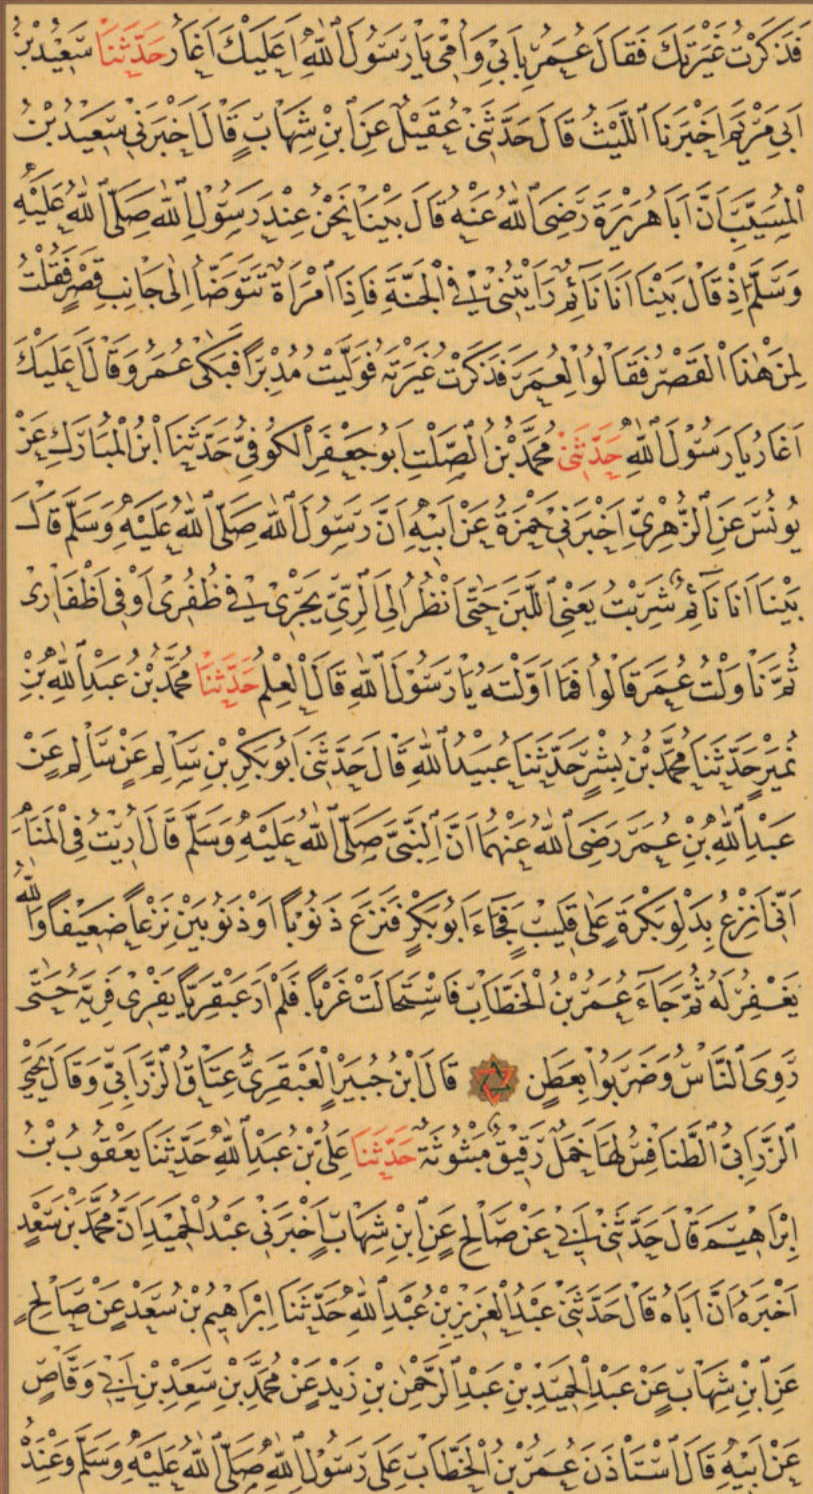 فَذَكَرْتُ غَيْرَتَكَ فَقَالَ عُمَرُ بِاَبِي وَاُمِّي يَا رَسُولَ اللّٰهِ اَعَلَيْكَ اَغَارُ حَدَّثَنَا سَعِيْدُ بْنُ
اَبِي مَرْيَمَ اَخْبَرَنَا اللَّيْثُ قَالَ حَدَّثَنِيْ عُقَيْلٌ عَنِ ابْنِ شِهَابٍ قَالَ اَخْبَرَنِيْ سَعِيْدُ بْنُ
الْمُسَيَّبِ اَنَّ اَبَا هُرَيْرَةَ رَضِيَ اللّٰهُ عَنْهُ قَالَ بَيْنَا نَحْنُ عِنْدَ رَسُوْلِ اللّٰهِ صَلَّى اللّٰهُ عَلَيْهِ
وَسَلَّمَ اِذْ قَالَ بَيْنَا اَنَا نَائِمٌ رَاَيْتُنِيْ فِي الْجَنَّةِ فَاِذَا امْرَاَةٌ تَتَوَضَّاُ اِلٰى جَانِبِ قَصْرٍ فَقُلْتُ
لِمَنْ هٰذَا الْقَصْرُ فَقَالُوْا لِعُمَرَ فَذَكَرْتُ غَيْرَتَهُ فَوَلَّيْتُ مُدْبِرًا فَبَكٰى عُمَرُ وَقَالَ اَعَلَيْكَ
اَغَارُ يَا رَسُوْلَ اللّٰهِ حَدَّثَنِيْ مُحَمَّدُ بْنُ الصَّلْتِ اَبُو جَعْفَرٍ الْكُوْفِيُّ حَدَّثَنَا ابْنُ الْمُبَارَكِ عَنْ
يُوْنُسَ عَنِ الزُّهْرِيِّ اَخْبَرَنِيْ حَمْزَةُ عَنْ اَبِيْهِ اَنَّ رَسُوْلَ اللّٰهِ صَلَّى اللّٰهُ عَلَيْهِ وَسَلَّمَ قَالَ
بَيْنَا اَنَا نَائِمٌ شَرِبْتُ يَعْنِي اللَّبَنَ حَتّٰى اَنْظُرُ اِلَى الرِّيِّ يَجْرِيْ فِيْ ظُفُرِيْ اَوْ فِيْ اَظْفَارِيْ
ثُمَّ نَاوَلْتُ عُمَرَ قَالُوْا فَمَا اَوَّلْتَهُ يَا رَسُوْلَ اللّٰهِ قَالَ الْعِلْمُ حَدَّثَنَا مُحَمَّدُ بْنُ عَبْدِ اللّٰهِ بْنِ
نُمَيْرٍ حَدَّثَنَا مُحَمَّدُ بْنُ بِشْرٍ حَدَّثَنَا عُبَيْدُ اللّٰهِ قَالَ حَدَّثَنِيْ اَبُوْ بَكْرِ بْنُ سَالِمٍ عَنْ سَالِمٍ عَنْ
عَبْدِ اللّٰهِ بْنِ عُمَرَ رَضِيَ اللّٰهُ عَنْهُمَا اَنَّ النَّبِيَّ صَلَّى اللّٰهُ عَلَيْهِ وَسَلَّمَ قَالَ اُرِيْتُ فِي الْمَنَامِ
اَنِّيْ اَنْزِعُ بِدَلْوِ بَكْرَةٍ عَلٰى قَلِيْبٍ فَجَاءَ اَبُوْ بَكْرٍ فَنَزَعَ ذَنُوْبًا اَوْ ذَنُوْبَيْنِ نَزْعًا ضَعِيْفًا وَاللّٰهُ
يَغْفِرُ لَهُ ثُمَّ جَاءَ عُمَرُ بْنُ الْخَطَّابِ فَاسْتَحَالَتْ غَرْبًا فَلَمْ اَرَ عَبْقَرِيًّا يَفْرِيْ فَرِيَّهُ حَتّٰى
رَوِيَ النَّاسُ وَضَرَبُوْا بِعَطَنٍ قَالَ ابْنُ جُبَيْرٍ الْعَبْقَرِيُّ عِتَاقُ الزَّرَابِيِّ وَقَالَ يَحْيَى
الزَّرَابِيُّ الطَّنَافِسُ لَهَا خَمْلٌ رَقِيْقٌ مَبْثُوْثَةٌ حَدَّثَنَا عَلِيُّ بْنُ عَبْدِ اللّٰهِ حَدَّثَنَا يَعْقُوْبُ بْنُ
اِبْرَاهِيْمَ قَالَ حَدَّثَنِيْ اَبِيْ عَنْ صَالِحٍ عَنِ ابْنِ شِهَابٍ اَخْبَرَنِيْ عَبْدُ الْحَمِيْدِ اَنَّ مُحَمَّدَ بْنَ سَعْدٍ
اَخْبَرَهُ اَنَّ اَبَاهُ قَالَ حَدَّثَنِيْ عَبْدُ الْعَزِيْزِ بْنُ عَبْدِ اللّٰهِ حَدَّثَنَا اِبْرَاهِيْمُ بْنُ سَعْدٍ عَنْ صَالِحٍ
عَنِ ابْنِ شِهَابٍ عَنْ عَبْدِ الْحَمِيْدِ بْنِ عَبْدِ الرَّحْمٰنِ بْنِ زَيْدٍ عَنْ مُحَمَّدِ بْنِ سَعْدِ بْنِ اَبِيْ وَقَّاصٍ
عَنْ اَبِيْهِ قَالَ اسْتَاْذَنَ عُمَرُ بْنُ الْخَطَّابِ عَلٰى رَسُوْلِ اللّٰهِ صَلَّى اللّٰهُ عَلَيْهِ وَسَلَّمَ وَعِنْدَهُ